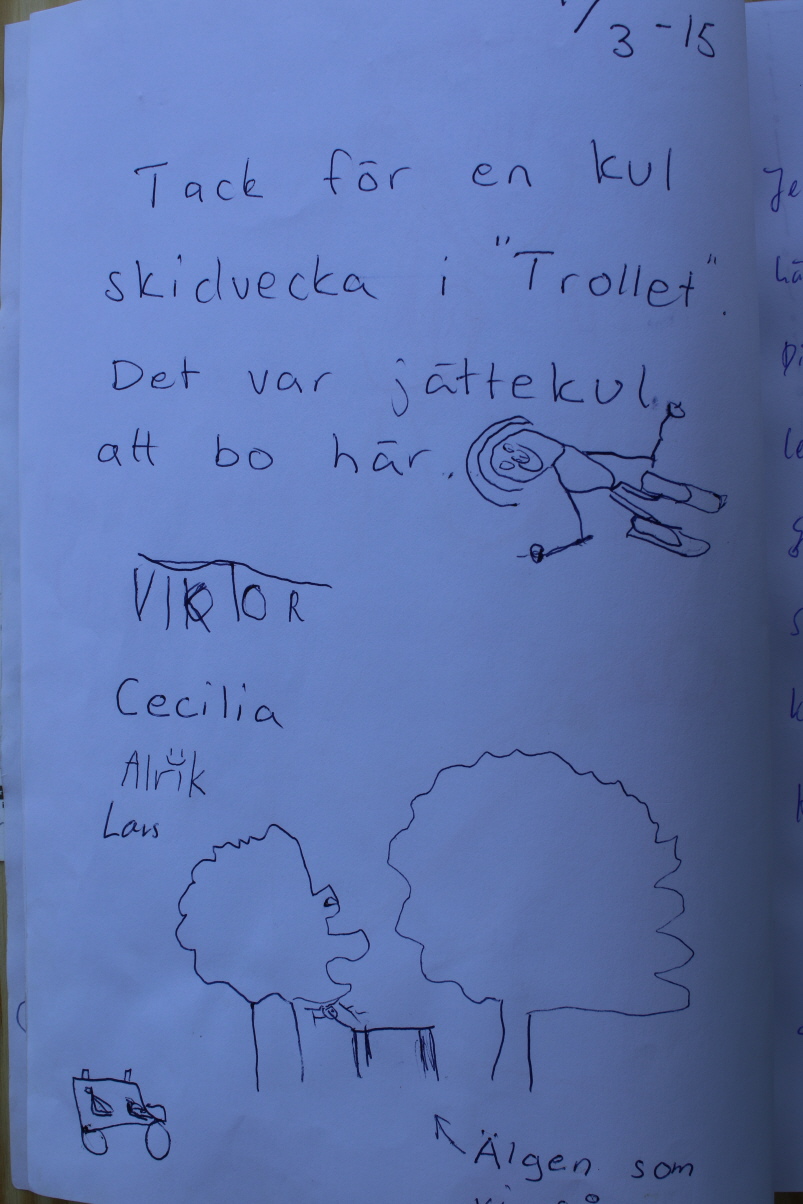 /3-15
Tack för en kul
skidvecka i "Trollet".
Det var jättekul
att bo här.
VIKTOR
Cecilia
Alrik
Lars
Älgen som